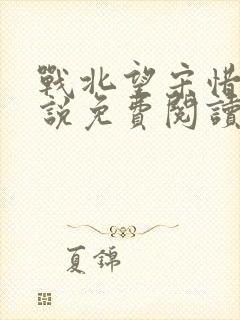 戰北望宋惜
說免費閱讀
夏錦